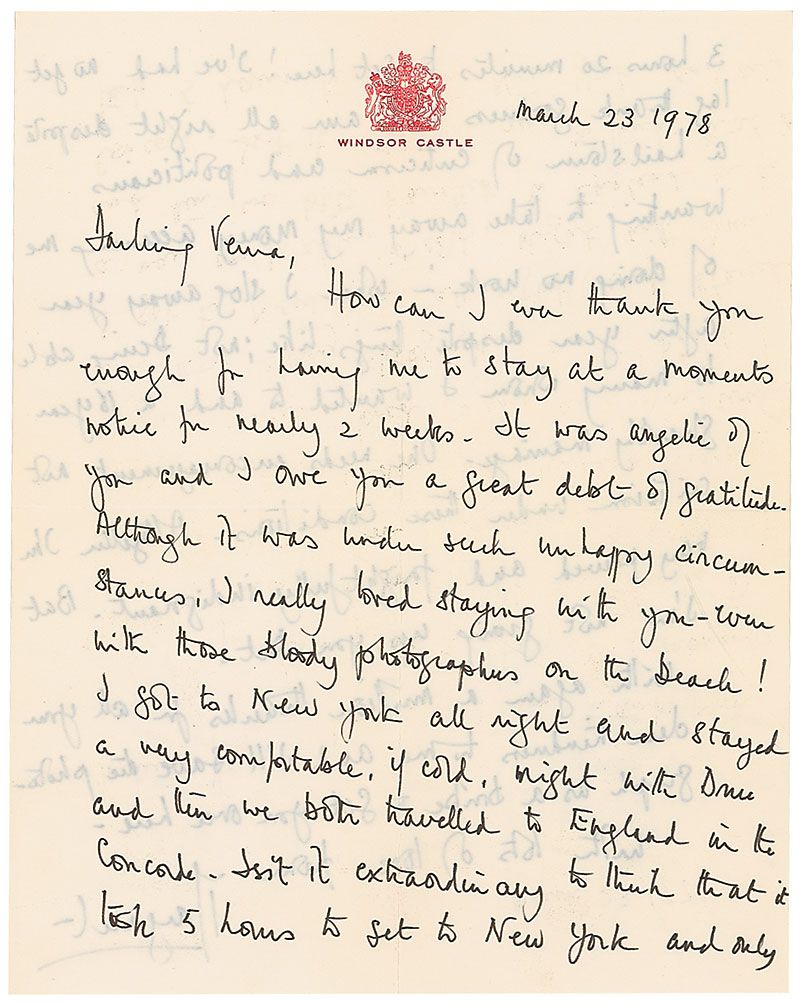 WINDSOR CASTLE
March 23 1978
Darling Verna,
How can I ever thank you
enough for having me to stay at a moments
notice for nearly 2 weeks. It was angelic of
you and I owe you a great debt of gratitude.
Although it was under such unhappy circum-
stances, I really loved staying with you - even
with those bloody photographers on the beach!
I got to New York all right and stayed
a very comfortable, if cold, night with Drue
and then we both travelled to England in the
Concorde. Isn't it extraordinary to think that it
took 5 hours to get to New York and only